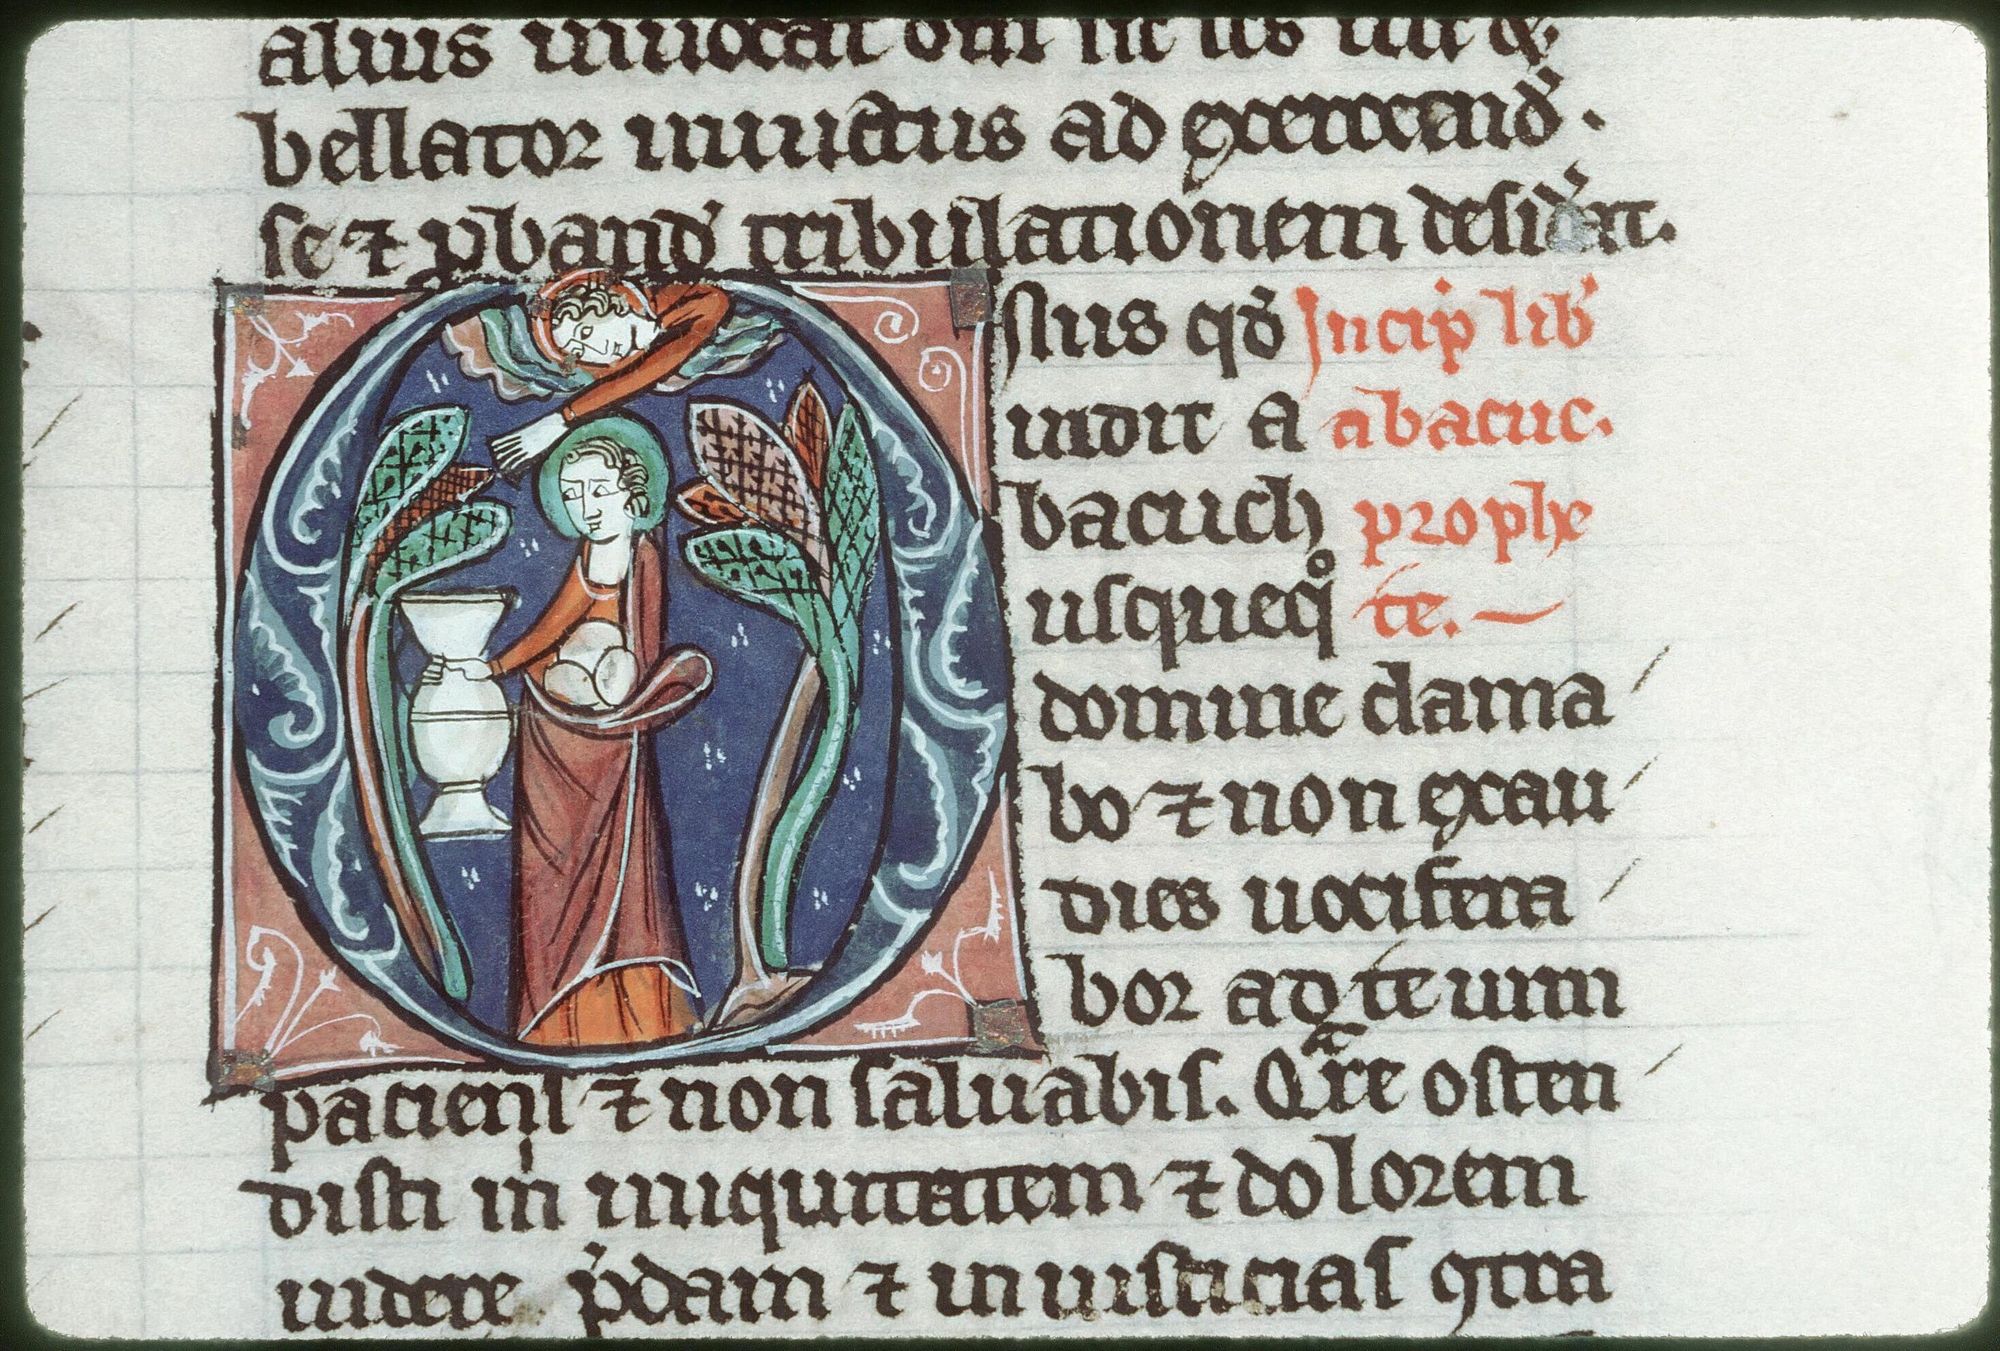 alius inuocat om̄ sit
bellator inuictus ad exercend̾.
se ⁊ ꝓband̾ tribulationem desid̾at.
Onus qd̾ Incip̾ lib̾
uidit A abacuc.
bacuch prophe
usqueq° te.
domine clama
bo ⁊ non exau
dies uocifera
bor ad te uim
paciens ⁊ non saluabis. Qᵃre osten
disti m̍ iniquitatem ⁊ dolorem
uidere p̾dam ⁊ iniusticias ꝯtra